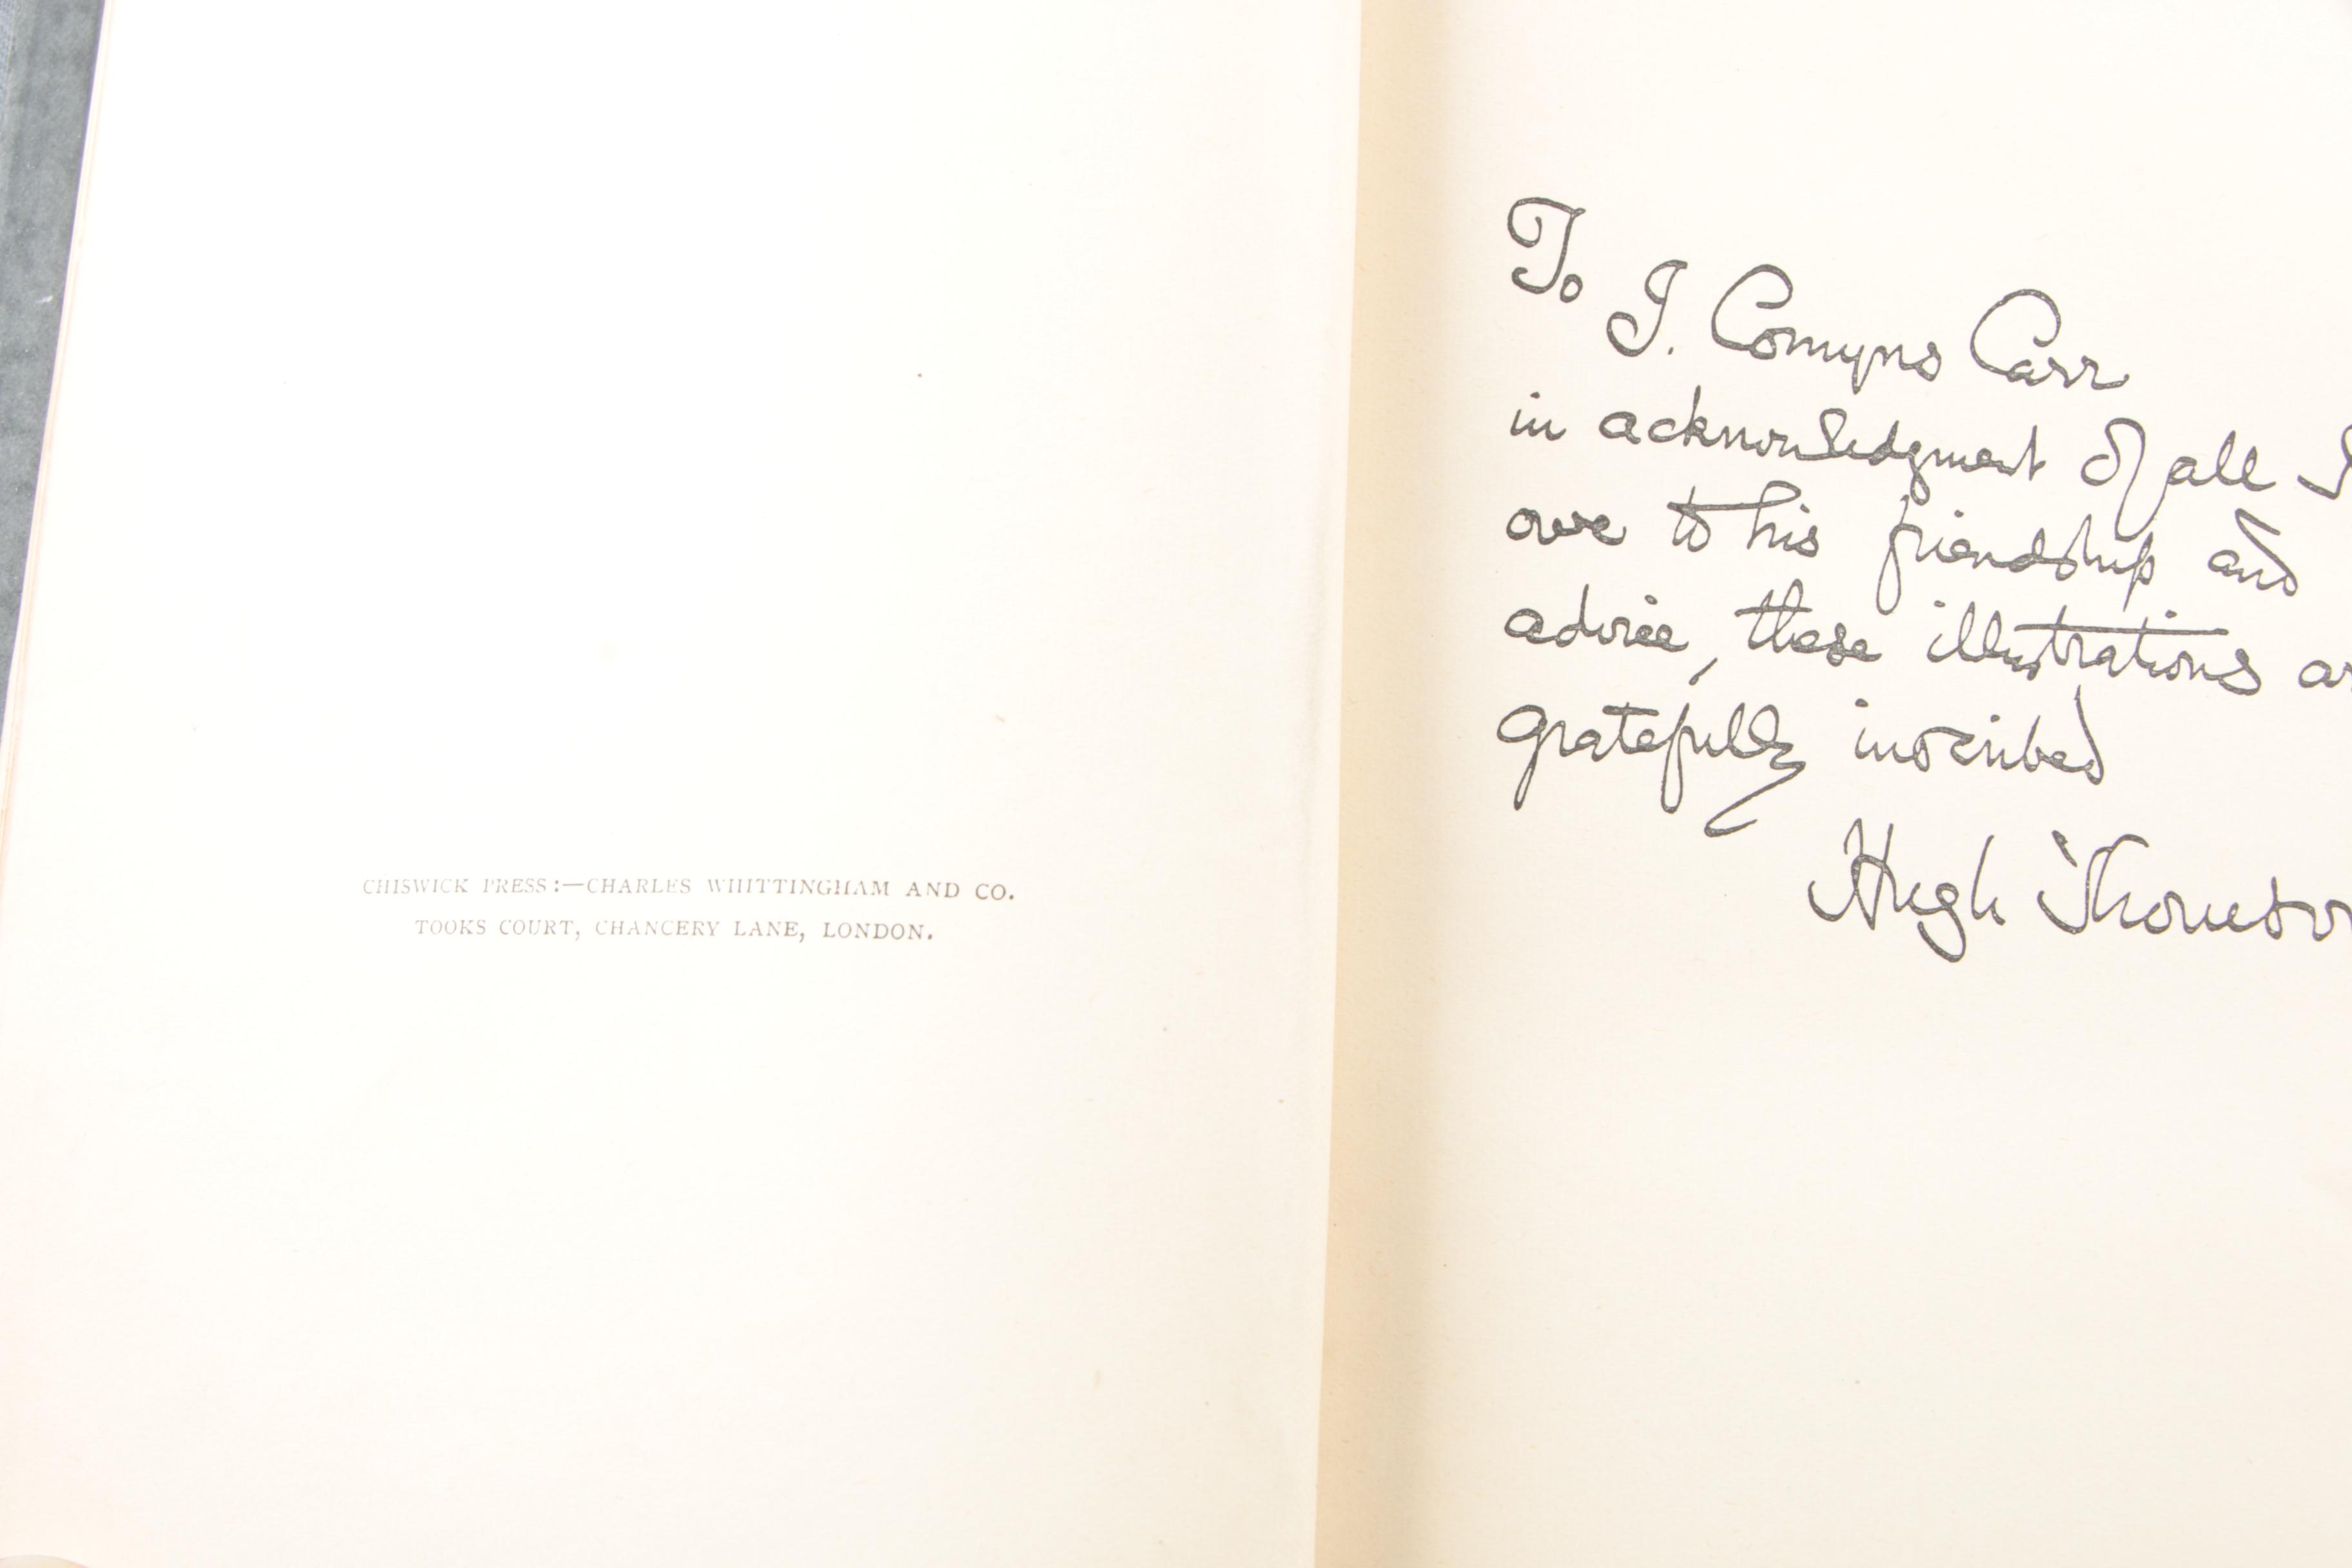 CHISWICK PRESS:—CHARLES WHITTINGHAM AND CO.
TOOKS COURT, CHANCERY LANE, LONDON.
To J. Comyns Carr
in acknowledgment of all I
owe to his friendship and
advice, these illustrations ar
gratefully inscribed
Hugh Thomson